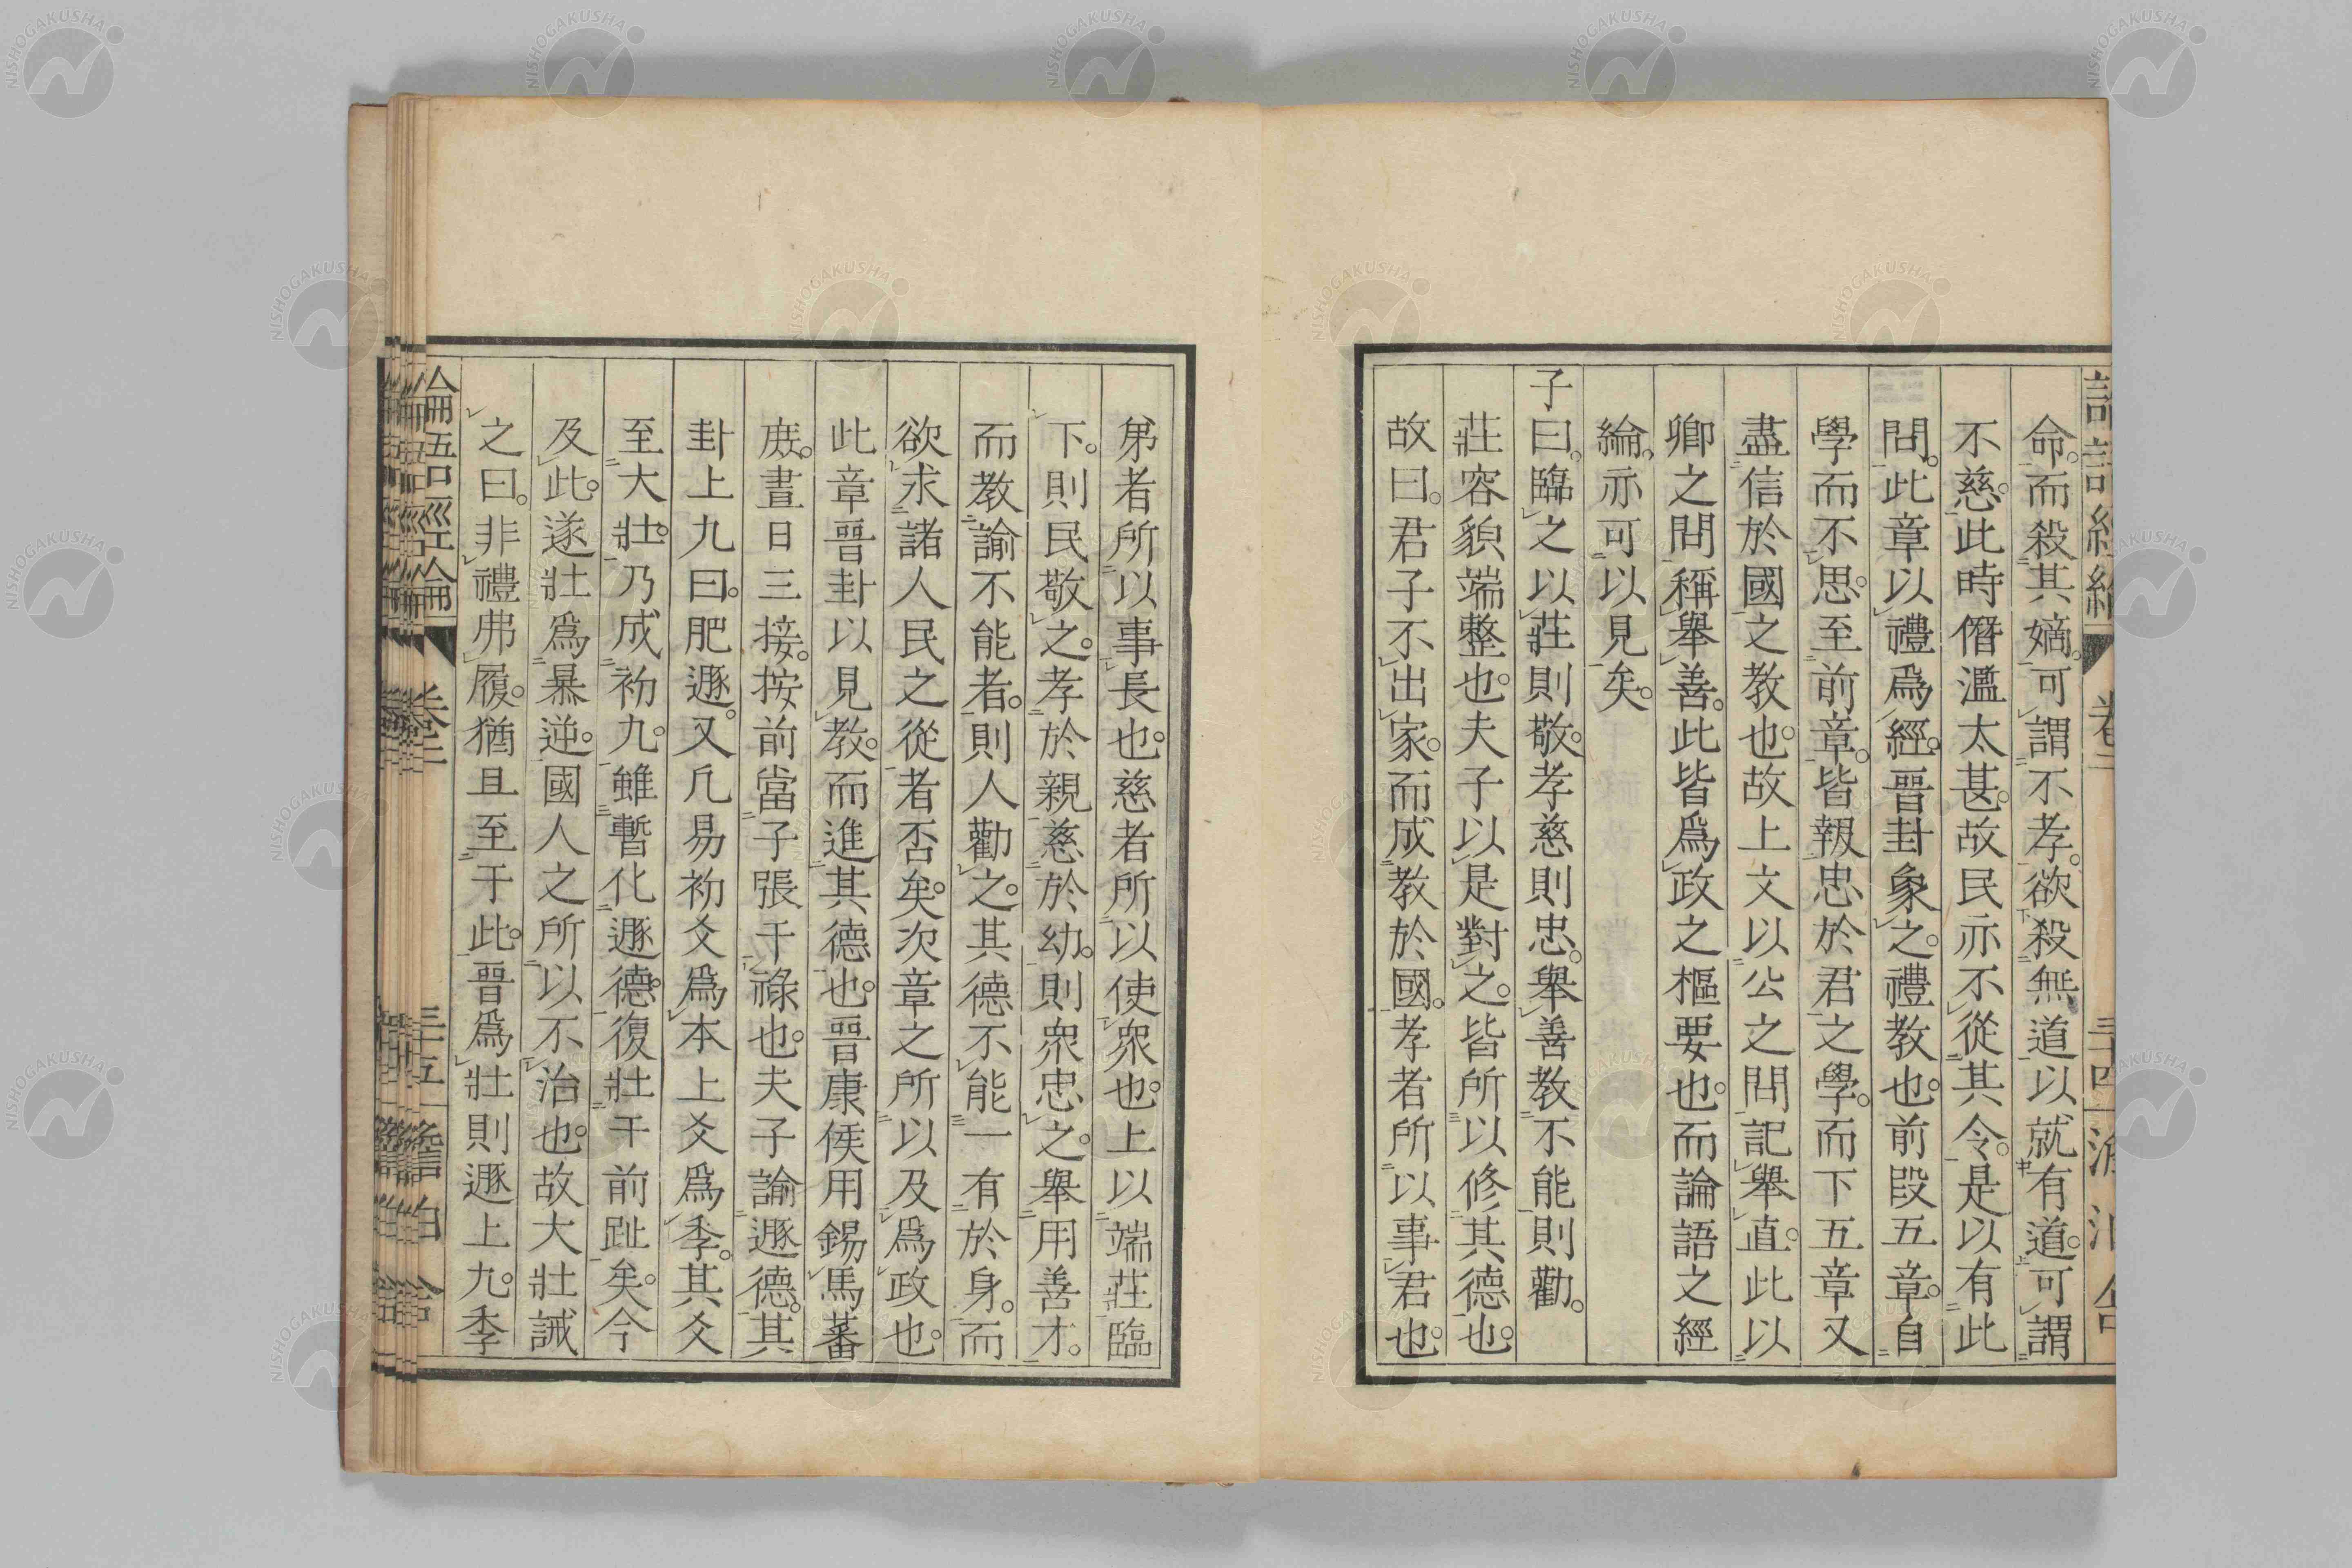 命。而殺其嫡。可謂不孝。欲殺無道以就有道。可謂
不慈。此時僭濫太甚。故民亦不從其令。是以有此
問。此章以禮爲經。晉卦象之。禮教也。前段五章。自
學而不思。至前章。皆報忠於君之學。而下五章又
盡信於國之教也。故上文以公之問記舉直。此以
卿之問稱舉善。此皆爲政之樞要也。而論語之經
綸。亦可以見矣。
子曰。臨之以莊則敬。孝慈則忠。舉善教不能則勸。
莊容貌端整也。夫子以是對之。皆所以修其德也。
故曰。君子不出家。而成教於國。孝者所以事君也。
弟者所以事長也。慈者所以使衆也。上以端莊臨
下。則民敬之。孝於親慈於幼。則衆忠之。舉用善才。
而教諭不能者。則人勸之。其德不能一有於身。而
欲求諸人民之從者否矣。次章之所以及爲政也。
此章晉卦以見教。而進其德也。晉康侯用錫馬蕃
庶。晝日三接。按前當子張干祿也。夫子諭遯德。其
卦上九曰。肥遯。又凡易初爻爲本上爻爲季。其爻
至大壯。乃成初九。雖暫化遯德。復壯于前趾矣。今
及此。遂壯爲暴逆。國人之所以不治也。故大壯誡
之曰。非禮弗履。猶且至于此。晉爲壯則遯上九。季
論語經論
卷二
三十五
NISHOGAKUSHA